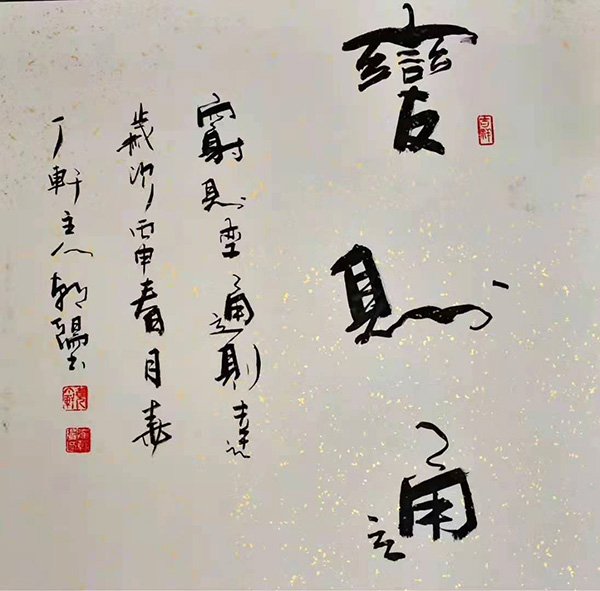 變則通
窮則变通則
歲次丙申春月
丁軒主人朝陽书